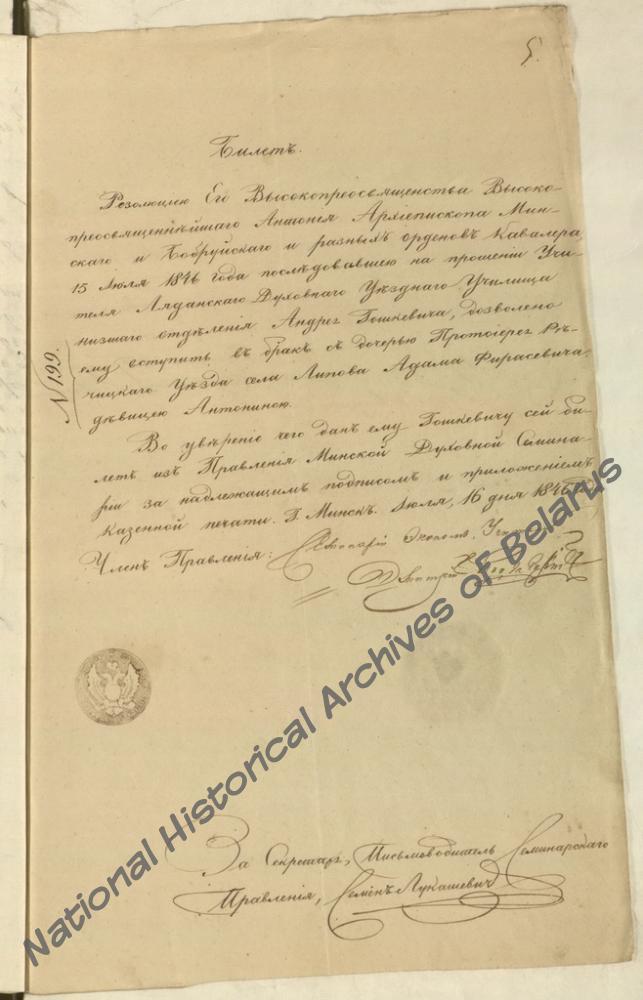 5.
Билетъ.
Резолюціею Его Высокопреосвященства Высоко-
преосвященнѣйшаго Антонія Архіепископа Мин-
скаго и Бобруйскаго и разныхъ орденовъ Кавалера,
15 Іюля 1846 года послѣдовавшею на прошеніи Учи-
теля Ляданскаго Духовнаго Уѣзднаго Училища
низшаго отдѣленія Андрея Гошкевича, дозволено
ему вступить въ бракъ съ дочерью Протоіерея Рѣ-
чицкаго Уѣзда села Липова Адама Фирасевича,
дѣвицею Антониною.
N 199.
Во увѣреніе чего данъ ему Гошкевичу сей би-
летъ изъ Правленія Минской Духовной Семина-
ріи за надлежащимъ подписомъ и приложеніемъ
казенной печати. Г. Минскъ. Іюля, 16 дня 1846
Членъ Правленія:
За Секретаря, Письмоводитель Семинарскаго
Правленія, Семенъ Лукашевич
National Historical Archives of Belarus